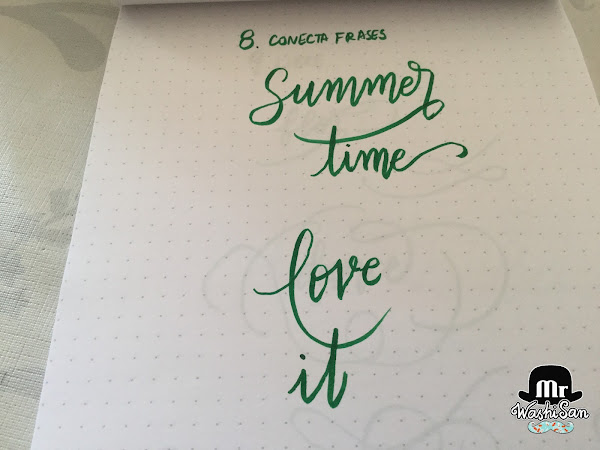 8. CONECTA FRASES
Summer
time
love
it
Mr
WashiSan